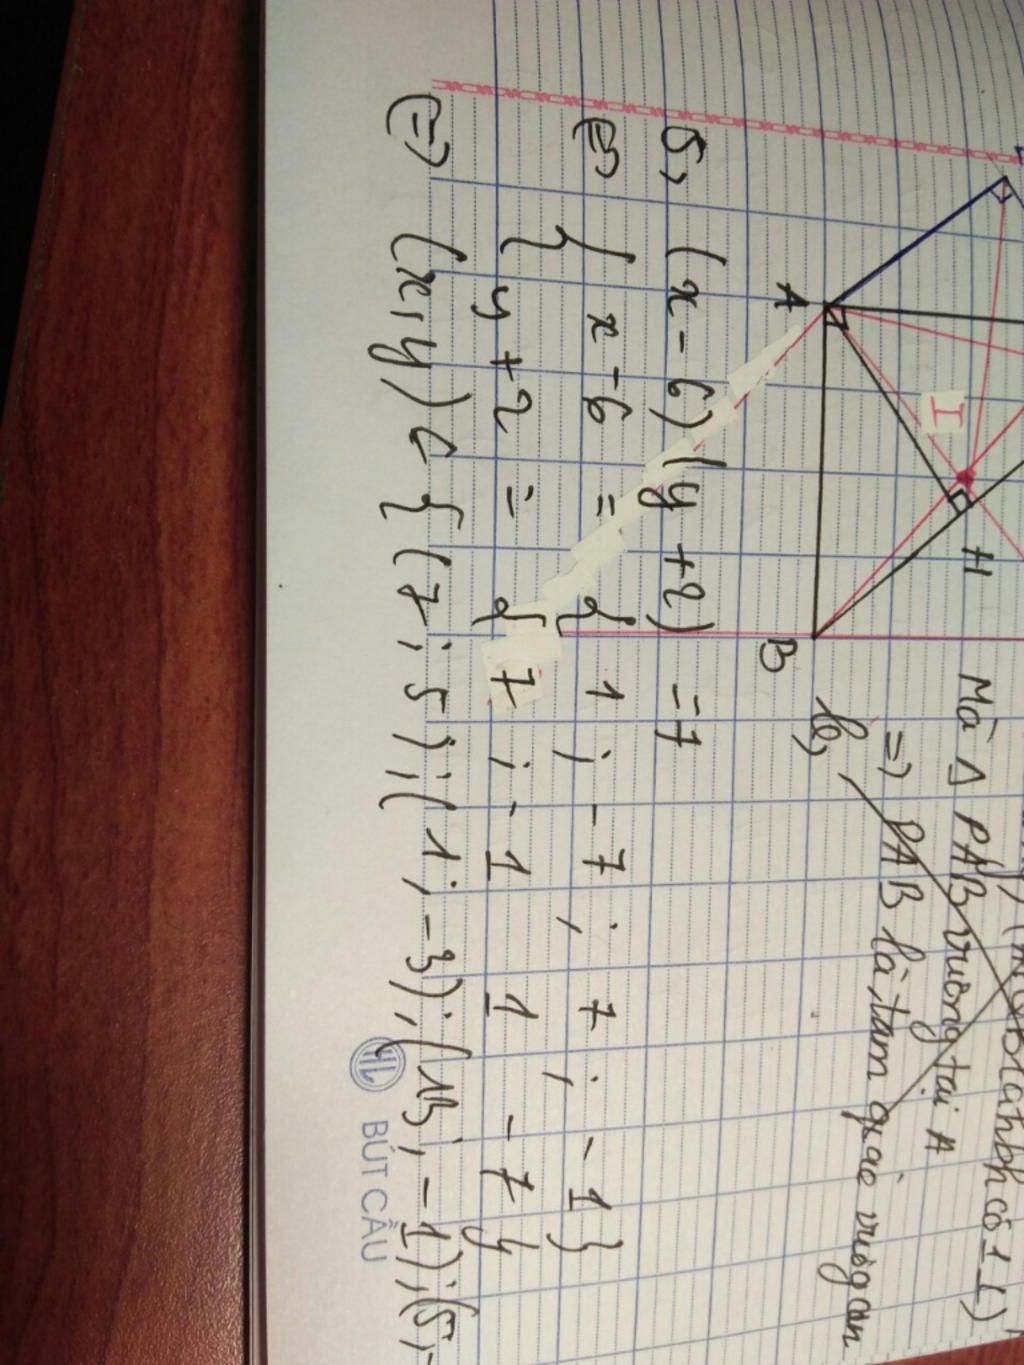 I
H
A
B
Mà Δ PAB vuông tại A
=) PAB là tam giác vuông cân
b,
5, (x-6)(y+2) = 7
(=) { x-6 = { 1 ; -7 ; 7 ; -1 }
{ y+2 = { 7 ; -1 1 -7 }
(=) (x;y) ∈ { (7;5);(1;-3);(13;-1);(5;-
BÚT CẦU